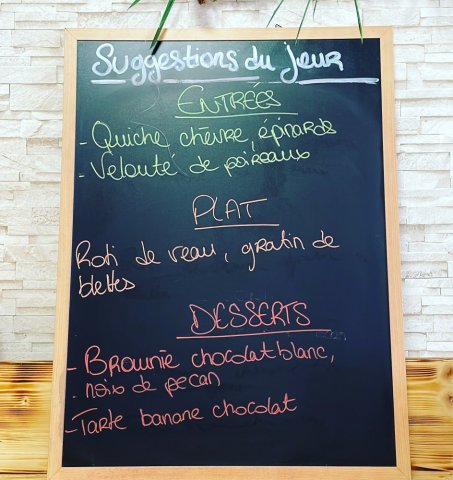 Suggestions du jour
ENTRÉES
- Quiche, chèvre, épinards
- Velouté de poireaux
PLAT
Roti de veau, gratin de
blettes
DESSERTS
- Brownie chocolat blanc,
noix de pecan
- Tarte banane chocolat